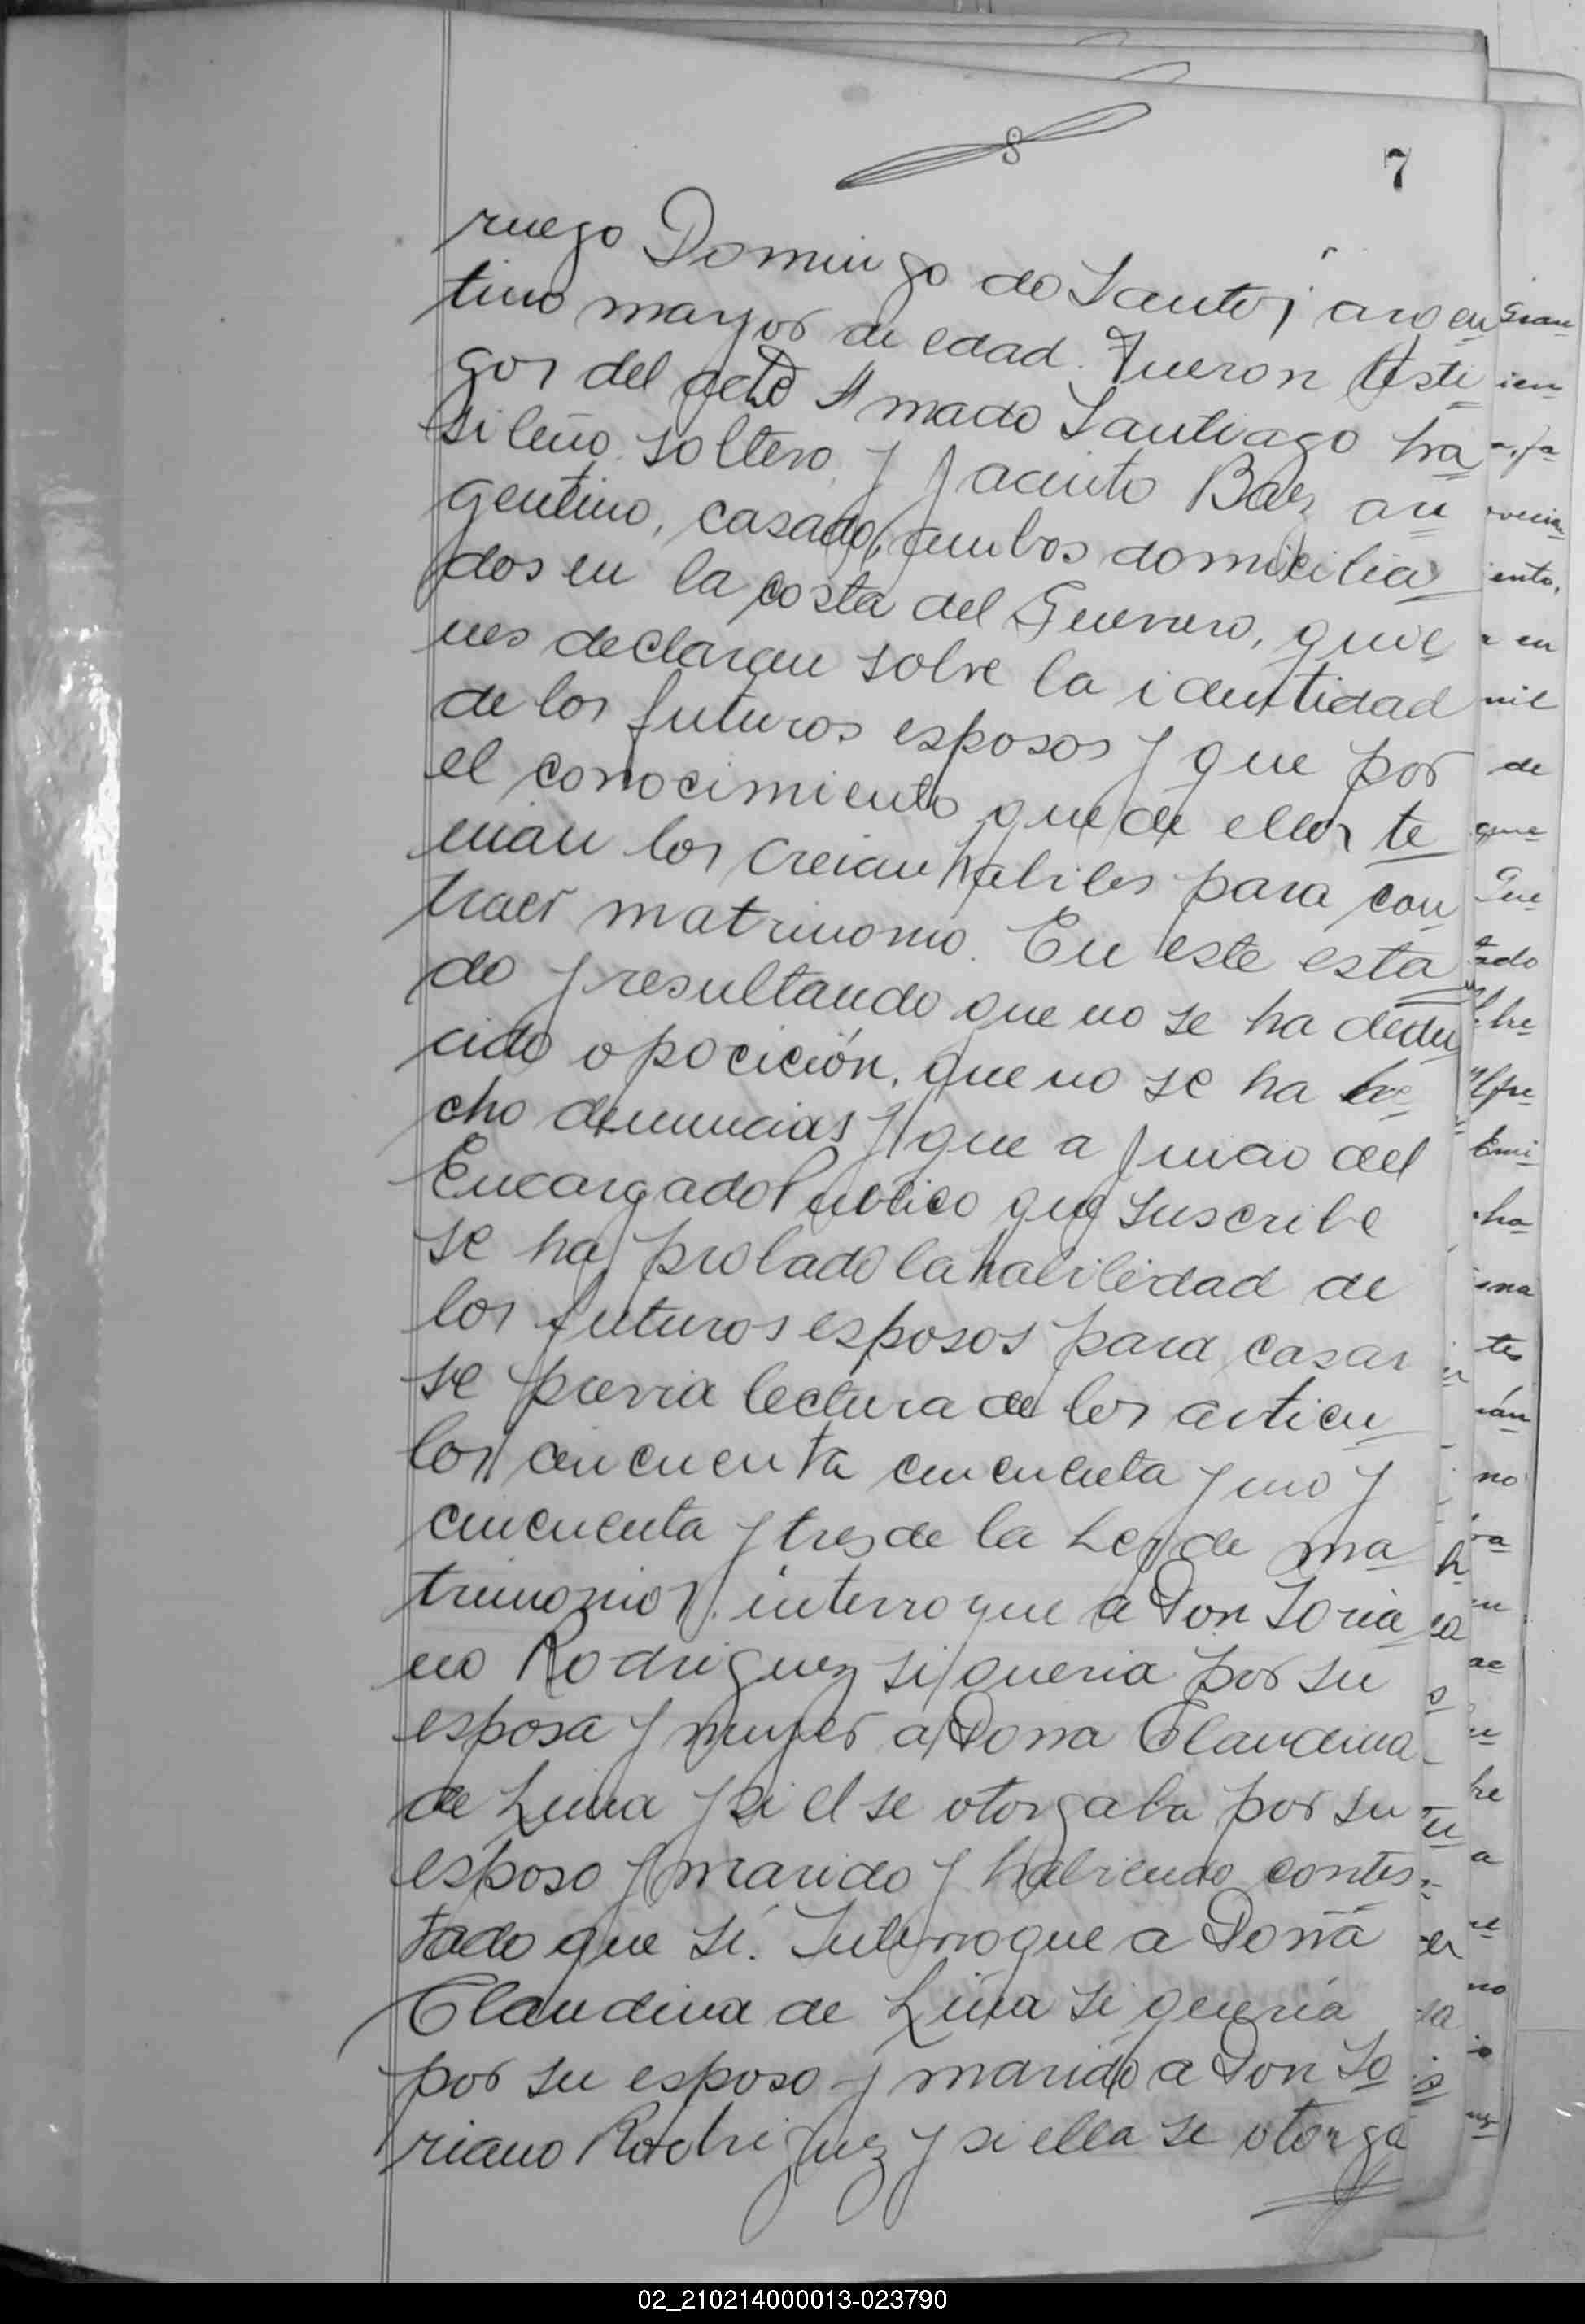 7
ruego Domingo de Santos argen
tino mayor de edad. Fueron testi
gos del acto Amado Santiago bra
sileño soltero y Jacinto Baez ar
gentino, casado, ambos domicilia
dos en la costa del Guerrero, quie
nes declaran sobre la identidad
de los futuros esposos y que por
el conocimiento que de ellos te
nian los creian habiles para con
traer matrimonio. En este esta
do y resultando que no se ha dedu
cido opocición, que no se ha he
cho denuncias y que a juicio del
Encargado Publico que suscribe
se ha probado la habilidad de
los futuros esposos para casar
se previa lectura de los articu
los cincuenta cincuenta y uno y
cincuenta y tres de la Ley de ma
trimonios. interroque a Don Soria
no Rodriguez si queria por su
esposa y mujer a Dona Claudina
de Lima y si el se otorgaba por su
esposo y marido y habiendo contes
tado que sí. Interroque a Doña
Claudina de Lima si queria
por su esposo y marido a Don So
riano Rodriguez y si ella se otorga
02_210214000013-023790